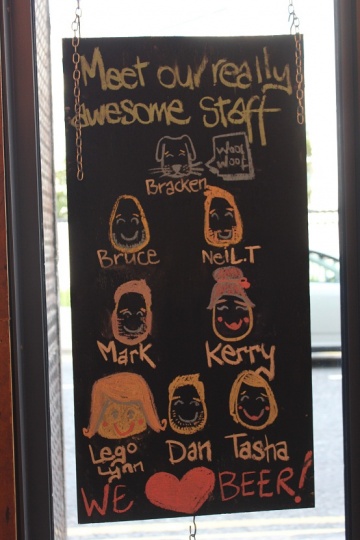 Meet our really
awesome Staff
WOOF
WOOF
Bracken
Bruce NeiL.T
Mark Kerry
Lego Lynn Dan Tasha
WE BEER!